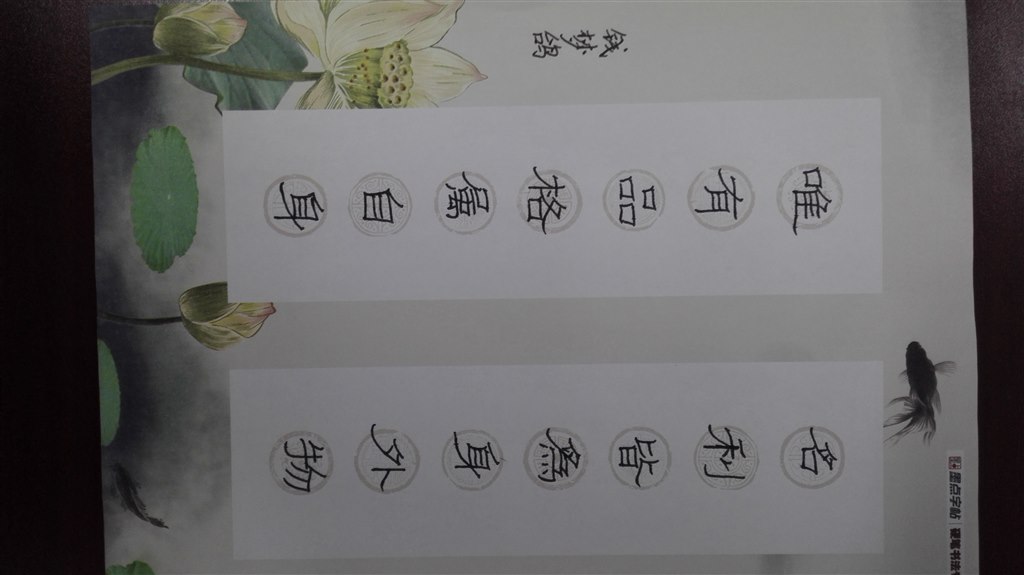 名利皆爲身外物
唯有品格属自身
钱梦鸽
墨点字帖 | 硬笔书法